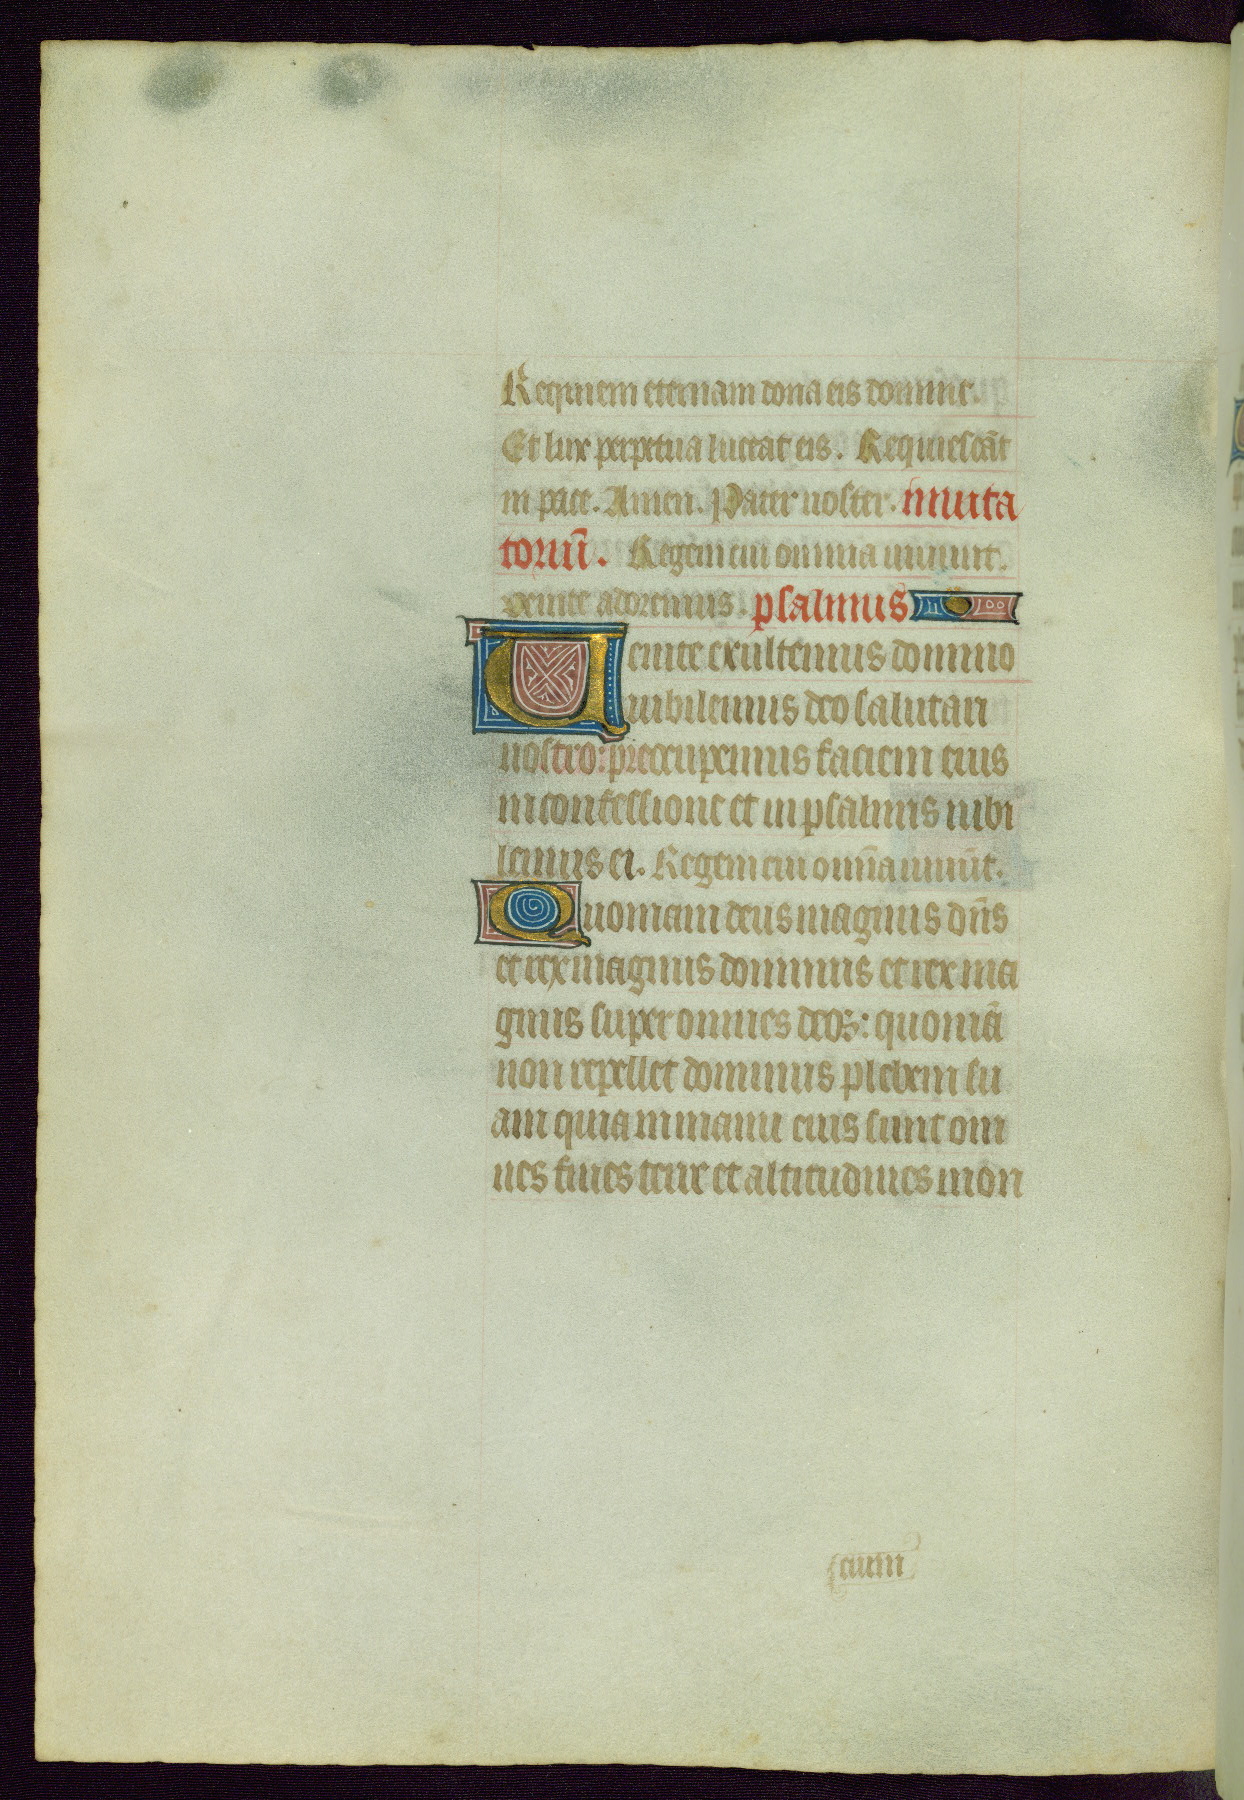 Requiem eternam dona eis domine.
Et lux perpetua luceat eis. Requiescāt
in pace. Amen. Pater noster. Inuita
toriū. Regem cui omnia uiuunt.
venite adoremus. psalmus
Uenite exultemus domino
iubilemus deo salutari
nostro: preocupemus faciem eius
in confessione et in psalmis iubi
lemus ei. Regem cui om̄ia uiuūt.
Quoniam deus magnus dn̄s
et rex magnus dominus et rex ma
gnus super omnes deos: quoniā
non repellet dominus plebem su
am quia in manu eius sunt om
nes fines terre et altitudines mon
cium